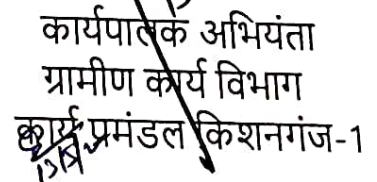 कार्यपालक अभियंता
ग्रामीण कार्य विभाग
कार्य प्रमंडल किशनगंज-1